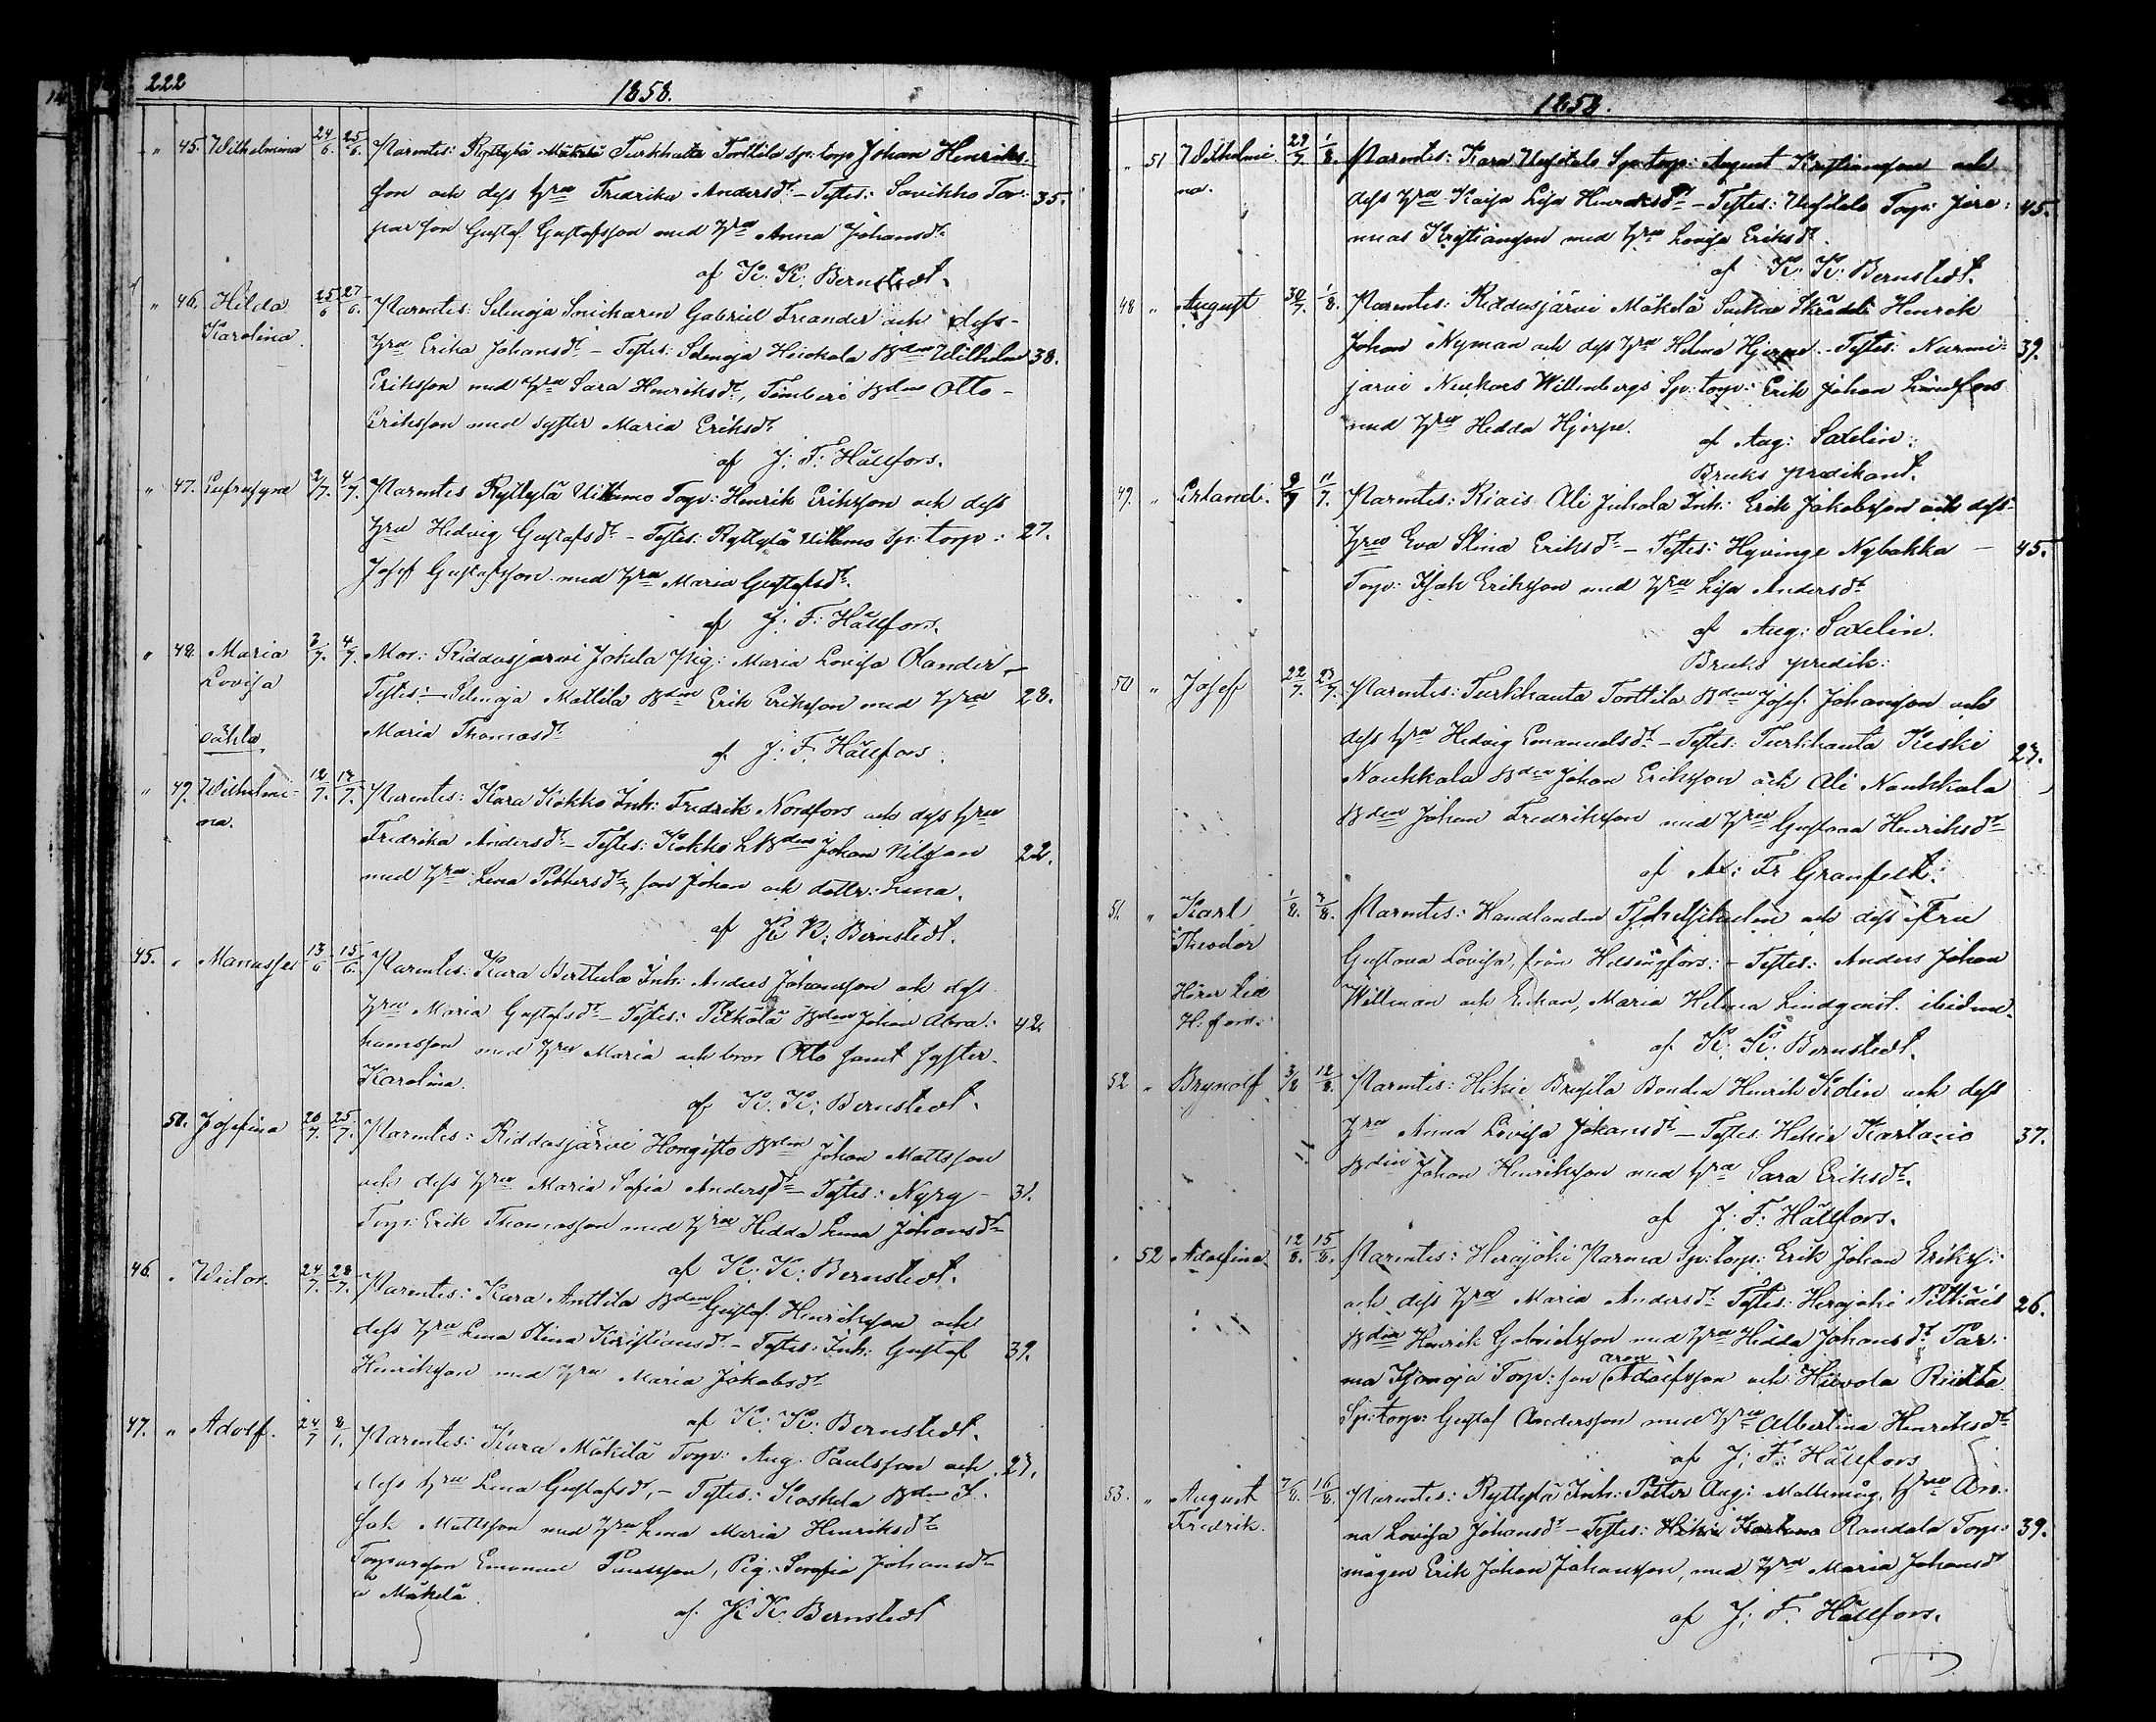 222
1858.
" 45. Wilhelmina 24/6. 25/6. Parentes: Ryttylä Turkhauta Torttila Sp: torp Johan Henriks-
son och dess hru Fredrika Andersdr - Testes: Savikko Tor- 35.
par son Gustaf Gustafsson med hru Anna Johansdr
af K. K. Bernstedt.
" 46. Hilda 25/6 27/6. Parentes: Selenoja Gabriel Freander och dess
Karolina. hru Erika Johansdr - Testes: Selenoja Heickola Bden Wilhelm 38.
Eriksson med hru Sara Henriksdr, Bden Otto
Eriksson med syster Maria Eriksdr
af J: F: Hällfors.
" 47. Eufrosyne 2/7. 4/7. Parentes Ryttylä Torp: Henrik Eriksson och dess
hru Hedvig Gustafsdr - Testes: Ryttylä Sp: torp: 27.
Josef Gustafsson med hru Maria Gustafsdr.
af J: F: Hällfors.
" 48. Maria 4/7. Mor: Riddasjärvi Jokela Pig: Maria Lovisa Olander -
Lovisa Testes: Selenoja Mattila Bdn Erik Eriksson med hru 28.
oäkta. Maria Thomasdr
af J: F. Hällfors.
" 49. Wilhelmi- 12/7. 17/7. Parentes: Kara Kokko Inh: Fredrik Nordfors och dess hru
na. Fredrika Andersdr - Testes: Kokko Bden Johan Nilsson 22.
med hru Lena Pettersdr, son Johan och dottr: Lena.
af K K: Bernstedt.
45. " Manasses 13/6 15/6. Parentes: Kara Berttula Inh: Anders Johansson och dess
hru Maria Gustafsdr - Testes: Bden Johan Abra- 42.
hamsson med hru Maria och bror Otto samt syster
Karolina.
af K. K: Bernstedt.
50. Josefina 20/7. 25/7. Parentes: Riddasjärvi Hongisto Bden Johan Mattsson
och dess hru Maria Sofia Andersdr - Testes: Nyry - 31.
Torp: Erik Thomasson med hru Hedda Lena Johansdr
af K: K: Bernstedt.
46. " Victor. 24/7. 28/7. Parentes: Kara Anttila Bden Gustaf Henriksson och
dess hru Lena Stina Kristiansdr - Testes: Inh: Gustaf 39.
Henriksson med hru Maria Jakobsdr
af K: K: Bernstedt.
47. " Adolf. 24/7 Parentes: Kara Mäkilä Torp: Aug. Paulsson och 27.
dess hru Lena Gustafsdr, - Testes: Koskela Bden I-
sak Mattsson med hru Lena Maria Henriksdr
Torpareson Emanuel Paulsson, Pig: Serafia Johansdr
a Mäkelä.
af K K: Bernstedt
1858.
" 51 Wilhelmi- 29/7. 1/8. Parentes: Kara Uusitalo Sp: torp: August Kristiansson och
na. dess hru Kaisa Lisa Henriksdr - Testes: Uusitalo Torp: Jere- 45.
mias Kristiansson med hru Lovisa Eriksdr.
af K: K: Bernstedt.
48 " August 30/7. 1/8. Parentes: Riddasjärvi Mäkelä Henrik
Johan Nyman och dess hru Helena Hjerpe. - Testes: Nurmi- 39.
jarvi Sp: torp: Erik Johan Lindfors
med hru Hedda Hjerpe.
af Aug: Saxelin.
Bruks predikant.
49. " Erland. 9/7 11/7. Parentes: Riais Ali Juhola Inh: Erik Jakobsson och dess
hru Eva Stina Eriksdr - Testes: Hyvinge Nybakka - 45.
Torp: Isak Eriksson med hru Lisa Andersdr
af Aug: Saxelin.
Bruks predik:
50 " Josef 22/7. 25/7. Parentes: Turkhauta Torttila Bden Josef Johansson och
dess hru Hedvig Emanuelsdr - Testes: Turkhauta Keski 27.
Naukkala Bden Johan Eriksson och Ali Naukkala
Bden Johan Fredriksson med hru Gustava Henriksdr
af Ax: Fr Granfelt.
51. " Karl 1/8. 7/8. Parentes: Handlanden och dess Fru
Theodor Gustava Lovisa, från Helsingfors: - Testes: Anders Johan
Hörer till Willman och Enkan, Maria Helena Lindqvist. ibidem.
H: fors. af K: K: Bernstedt.
52 " Brynolf 3/8 12/8. Parentes: Hikiä Bonden Henrik Kolin och dess
hru Anna Lovisa Johansdr - Testes: Hikiä Kartano 37.
Bden Johan Henriksson med hru Sara Eriksdr.
af J: F: Hällfors.
" 52 Adolfina. 12/8. 15/8. Parentes: Herajoki Parma Sp: torp: Erik Johan Eriks:
och dess hru Maria Andersdr Testes: Herajoki 26.
Bden Henrik Gabrielsson med hru Hedda Johansdr Par-
Aron
ma Torp: son Adolfsson och
Sp: torp: Gustaf Andersson med hru Albertina Henriksdr
af J: F: Hällfors
53. " August 7/8. 16/8. Parentes: Ryttylä Inh: Petter Aug: hru An-
Fredrik. na Lovisa Johansdr - Testes: Randala Torp: 39.
mågen Erik Johan Johansson, med hru Maria Johansdr
af J: F. Hällfors.